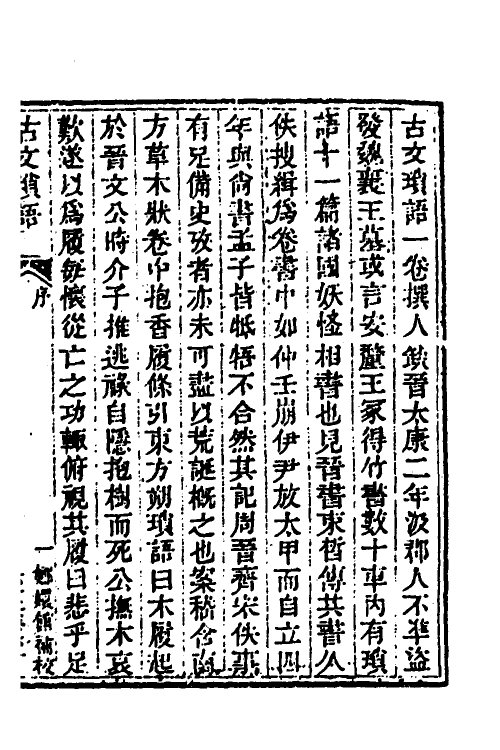 古文瑣語一卷撰人缺晉太康二年汲郡人不準盜
發魏襄王墓或言安釐王冢得竹書數十車內有瑣
語十一篇諸國妖怪相書也見晉書束皙傳其書久
佚搜緝爲卷書中如仲壬崩伊尹放太甲而自立四
年與尚書孟子皆牴牾不合然其記周晉齊宋佚事
有足備史攷者亦未可盡以荒誕概之也案嵇含南
方草木狀卷中抱香履條引東方朔瑣語曰木履起
於晉文公時介子推逃祿自隱抱樹而死公撫木哀
歎遂以爲履每懷從亡之功輒俯視其履曰悲乎足
古文瑣語
序
一
嫏嬛館補校